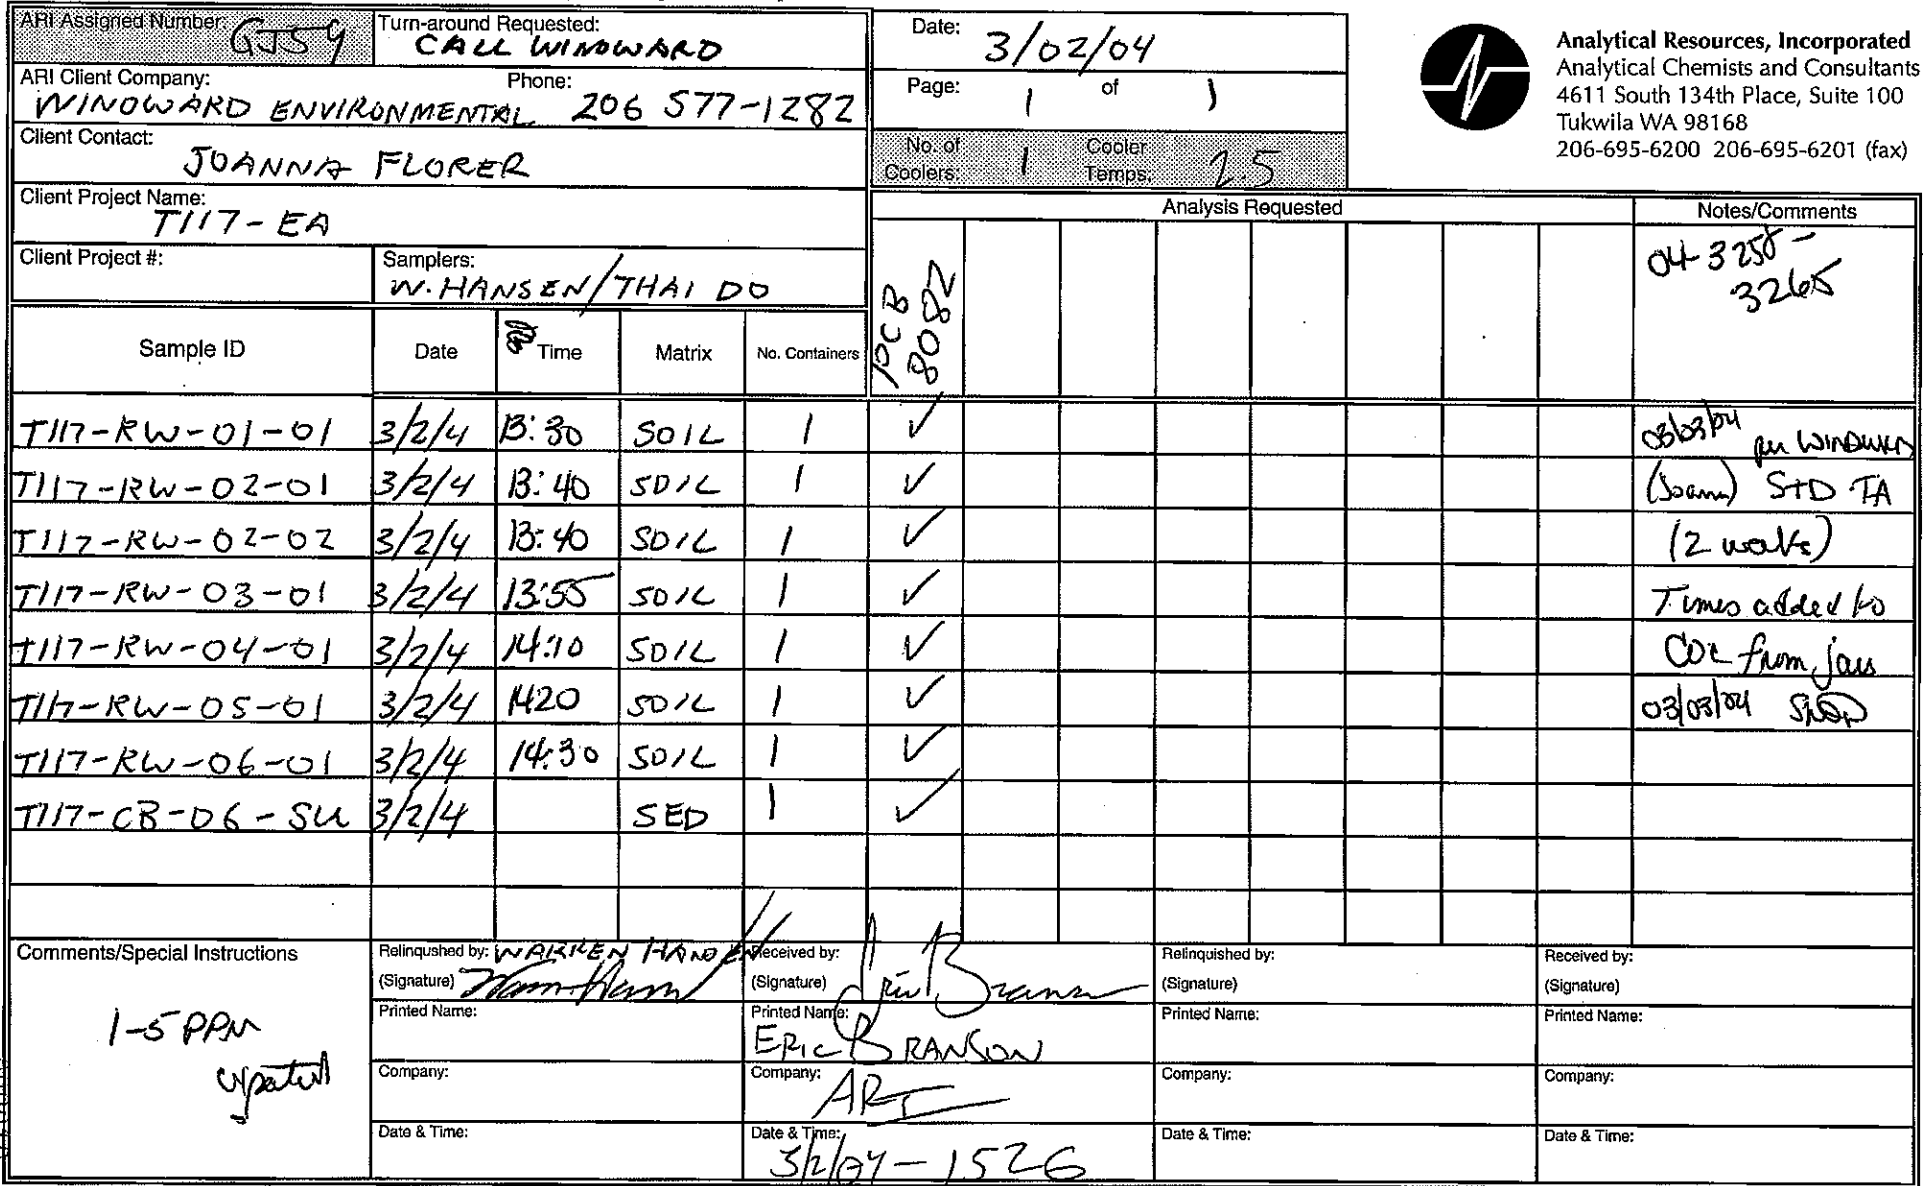 ARI Assigned Number: GJ59
Turn-around Requested:
CALL WINDWARD
ARI Client Company: Phone:
WINDWARD ENVIRONMENTAL 206 577-1282
Client Contact:
JOANNA FLORER
Client Project Name:
T117-EA
Client Project #:
Samplers:
W. HANSEN/THAI DO
Date: 3/02/04
Page: 1 of 1
No. of Coolers: 1 Cooler Temps: 2.5
Analytical Resources, Incorporated
Analytical Chemists and Consultants
4611 South 134th Place, Suite 100
Tukwila WA 98168
206-695-6200 206-695-6201 (fax)
Analysis Requested
Notes/Comments
PCB
8082
04-3258-
3265
Sample ID Date Time Matrix No. Containers
T117-RW-01-01 3/2/4 13:30 SOIL 1 ✓ 03/03/04 per WINDWARD
T117-RW-02-01 3/2/4 13:40 SOIL 1 ✓ (Joann) STD TA
T117-RW-02-02 3/2/4 13:40 SOIL 1 ✓ (2 weeks)
T117-RW-03-01 3/2/4 13:55 SOIL 1 ✓ Times added to
T117-RW-04-01 3/2/4 14:10 SOIL 1 ✓ COC from jars
T117-RW-05-01 3/2/4 1420 SOIL 1 ✓ 03/03/04
T117-RW-06-01 3/2/4 14:30 SOIL 1 ✓
T117-CB-06-SU 3/2/4 SED 1 ✓
Comments/Special Instructions
1-5 PPM
Relinqushed by: WARREN HANSEN
(Signature)
Printed Name:
Company:
Date & Time:
Received by:
(Signature) Eric Branson
Printed Name:
ERIC BRANSON
Company: ARI
Date & Time:
3/2/04 - 1526
Relinquished by:
(Signature)
Printed Name:
Company:
Date & Time:
Received by:
(Signature)
Printed Name:
Company:
Date & Time: